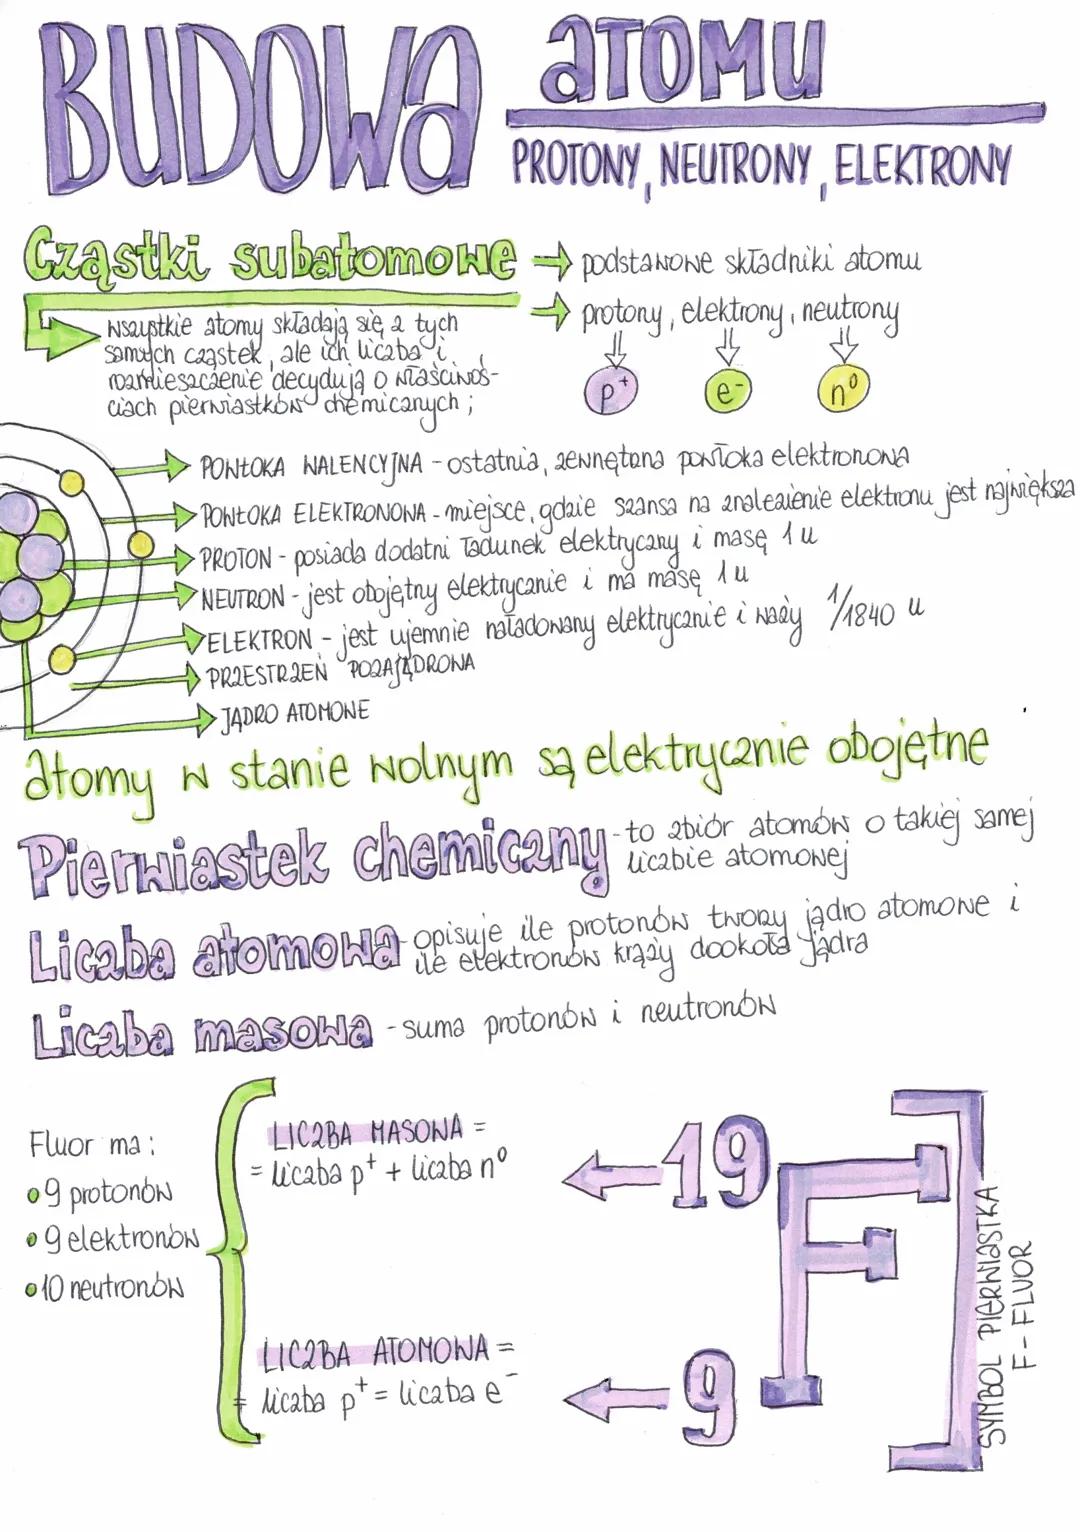 BUDOWA ATOMU
PROTONY, NEUTRONY, ELEKTRONY
Cząstki subatomowe → podstawowe składniki atomu
→ protony, elektrony, neutrony
p⁺ e⁻ n⁰
wszystkie atomy składają się z tych
samych cząstek, ale ich liczba i
rozmieszczenie decydują o właściwoś-
ciach pierwiastków chemicznych;
POWŁOKA WALENCYJNA - ostatnia, zewnętrzna powłoka elektronowa
POWŁOKA ELEKTRONOWA - miejsce, gdzie szansa na znalezienie elektronu jest największa
PROTON - posiada dodatni ładunek elektryczny i masę 1 u
NEUTRON - jest obojętny elektrycznie i ma masę 1 u
ELEKTRON - jest ujemnie naładowany elektrycznie i waży 1/1840 u
PRZESTRZEŃ POZAJĄDROWA
JĄDRO ATOMOWE
Atomy w stanie wolnym są elektrycznie obojętne
Pierwiastek chemiczny - to zbiór atomów o takiej samej
liczbie atomowej
Liczba atomowa - opisuje ile protonów tworzy jądro atomowe i
ile elektronów krąży dookoła jądra
Liczba masowa - suma protonów i neutronów
Fluor ma:
• 9 protonów
• 9 elektronów
• 10 neutronów
LICZBA MASOWA =
= liczba p⁺ + liczba n⁰
← 19
F
LICZBA ATOMOWA =
= liczba p⁺ = liczba e⁻
← 9
SYMBOL PIERWIASTKA
F - FLUOR